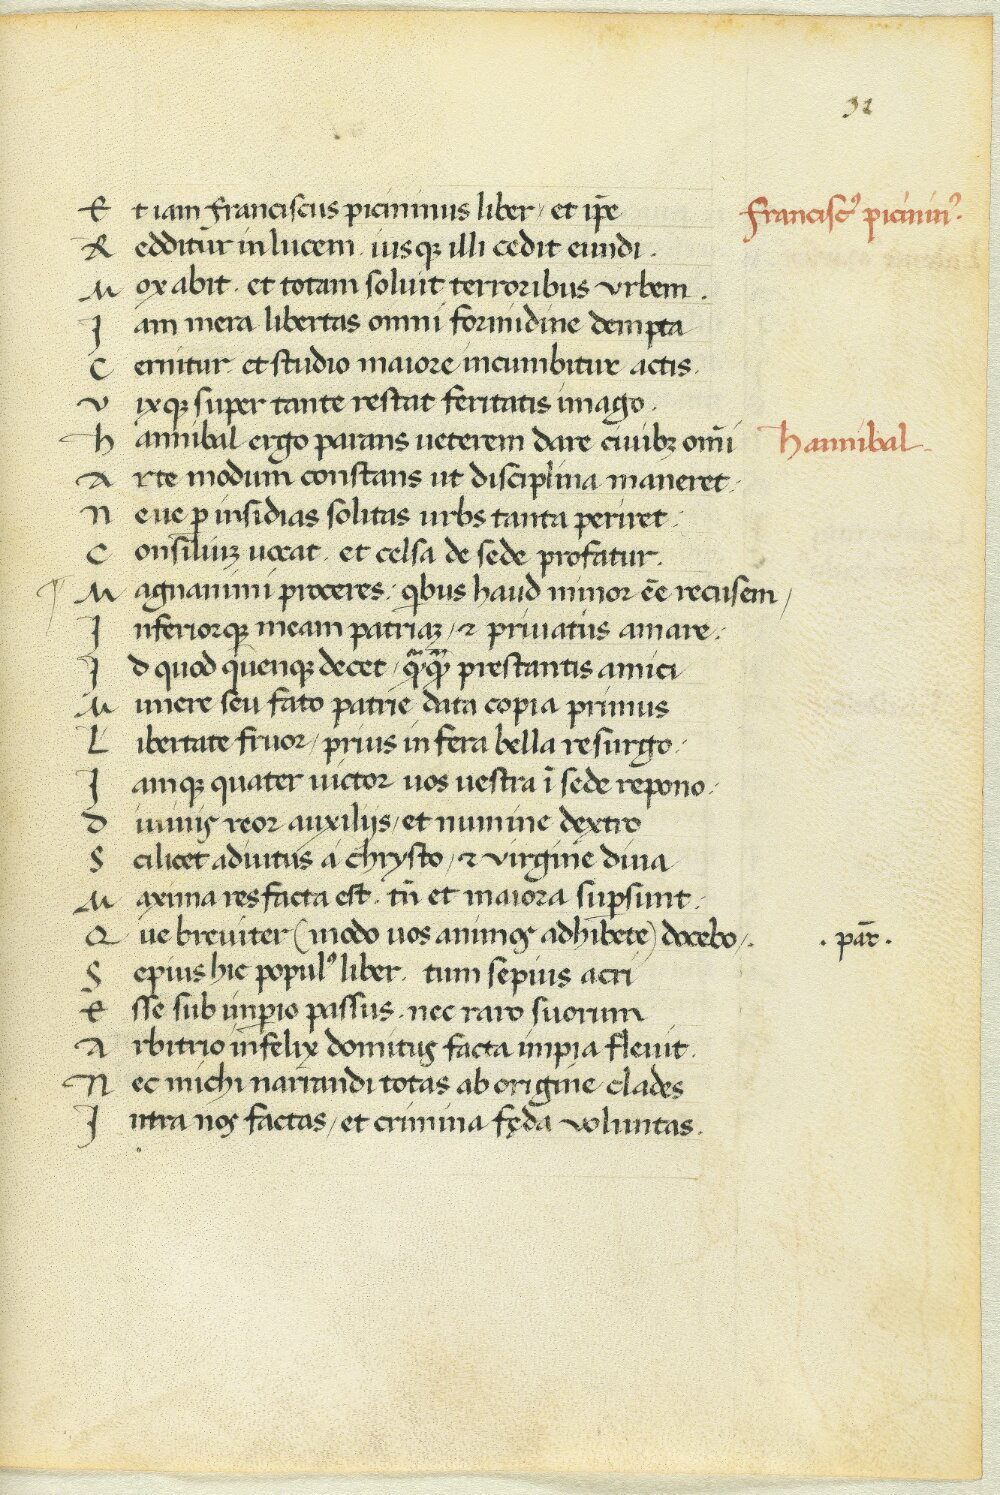 32
Et iam franciscus picininus liber / et ip̄e Francisc⁹ picinin⁹.
Redditur in lucem . iusqꝫ illi cedit eundi .
Mox abit . et totam soluit terroribus vrbem .
Jam mera libertas omni formidine dempta
Cernitur . et studio maiore incumbitur actis .
Vixqꝫ super tante restat feritatis imago .
Hannibal ergo parans ueterem dare ciuibꝫ om̄i Hannibal .
Arte modum constans ut disciplina maneret .
Neue ꝑ insidias solitas urbs tanta periret .
Consiliuꝫ uocat . et celsa de sede profatur .
Magnanimi proceres . qbus haud minor ēe recusem /
Jnferiorqꝫ meam patriaꝫ / ⁊ priuatus amare .
Jd quod quenqꝫ decet / qᷓqᷓ prestantis amici
Munere seu fato patrie data copia primus
Libertate fruor / prius in fera bella resurgo .
Jamqꝫ quater uictor uos uestra ī sede repono .
Diuinis reor auxilijs / et numine dextro
Scilicet adiutus a chrysto / ⁊ virgine diua
Maxima res facta est . tn̄ et maiora suꝑsunt .
Que breuiter (modo uos animos adhibete) docebo / . . par̄ .
Sepius hic popul⁹ liber . tum sepius acri
Esse sub imꝑio passus . nec raro suorum
Arbitrio infelix domitus facta impia fleuit .
Nec michi narrandi totas ab origine clades
Jntra nos factas / et crimina fęda voluntas .